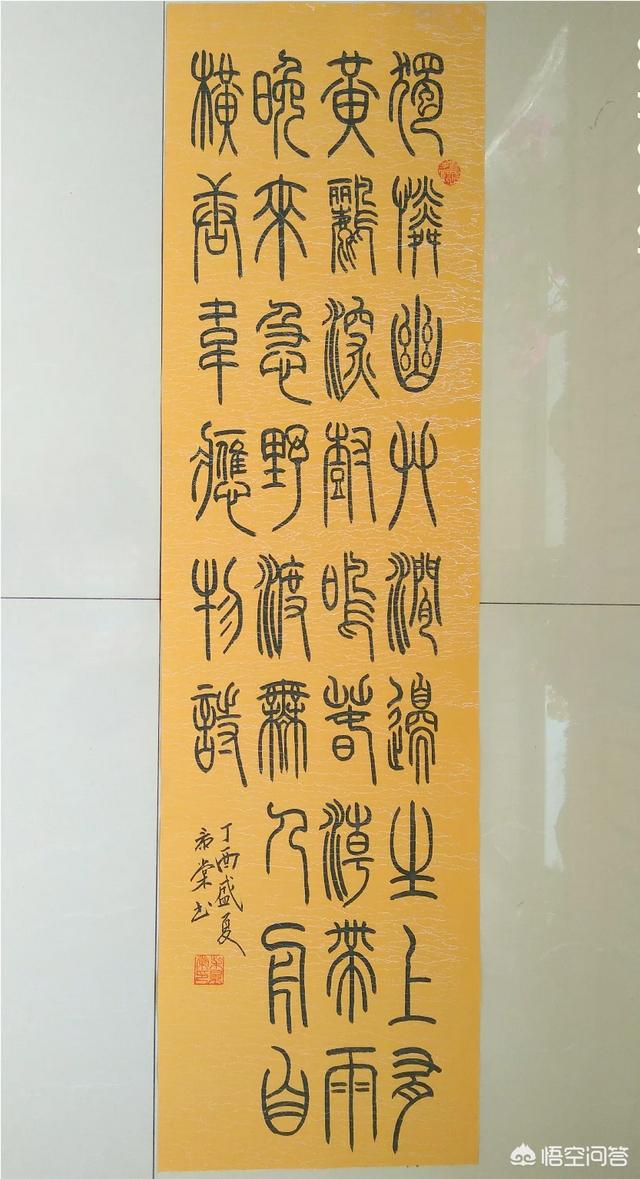 獨憐幽艸澗邊生上有
黃鸝深樹鳴春潮帶雨
晚來急野渡無人舟自
橫唐韋應物詩
丁酉盛夏
希棠书
悟空问答